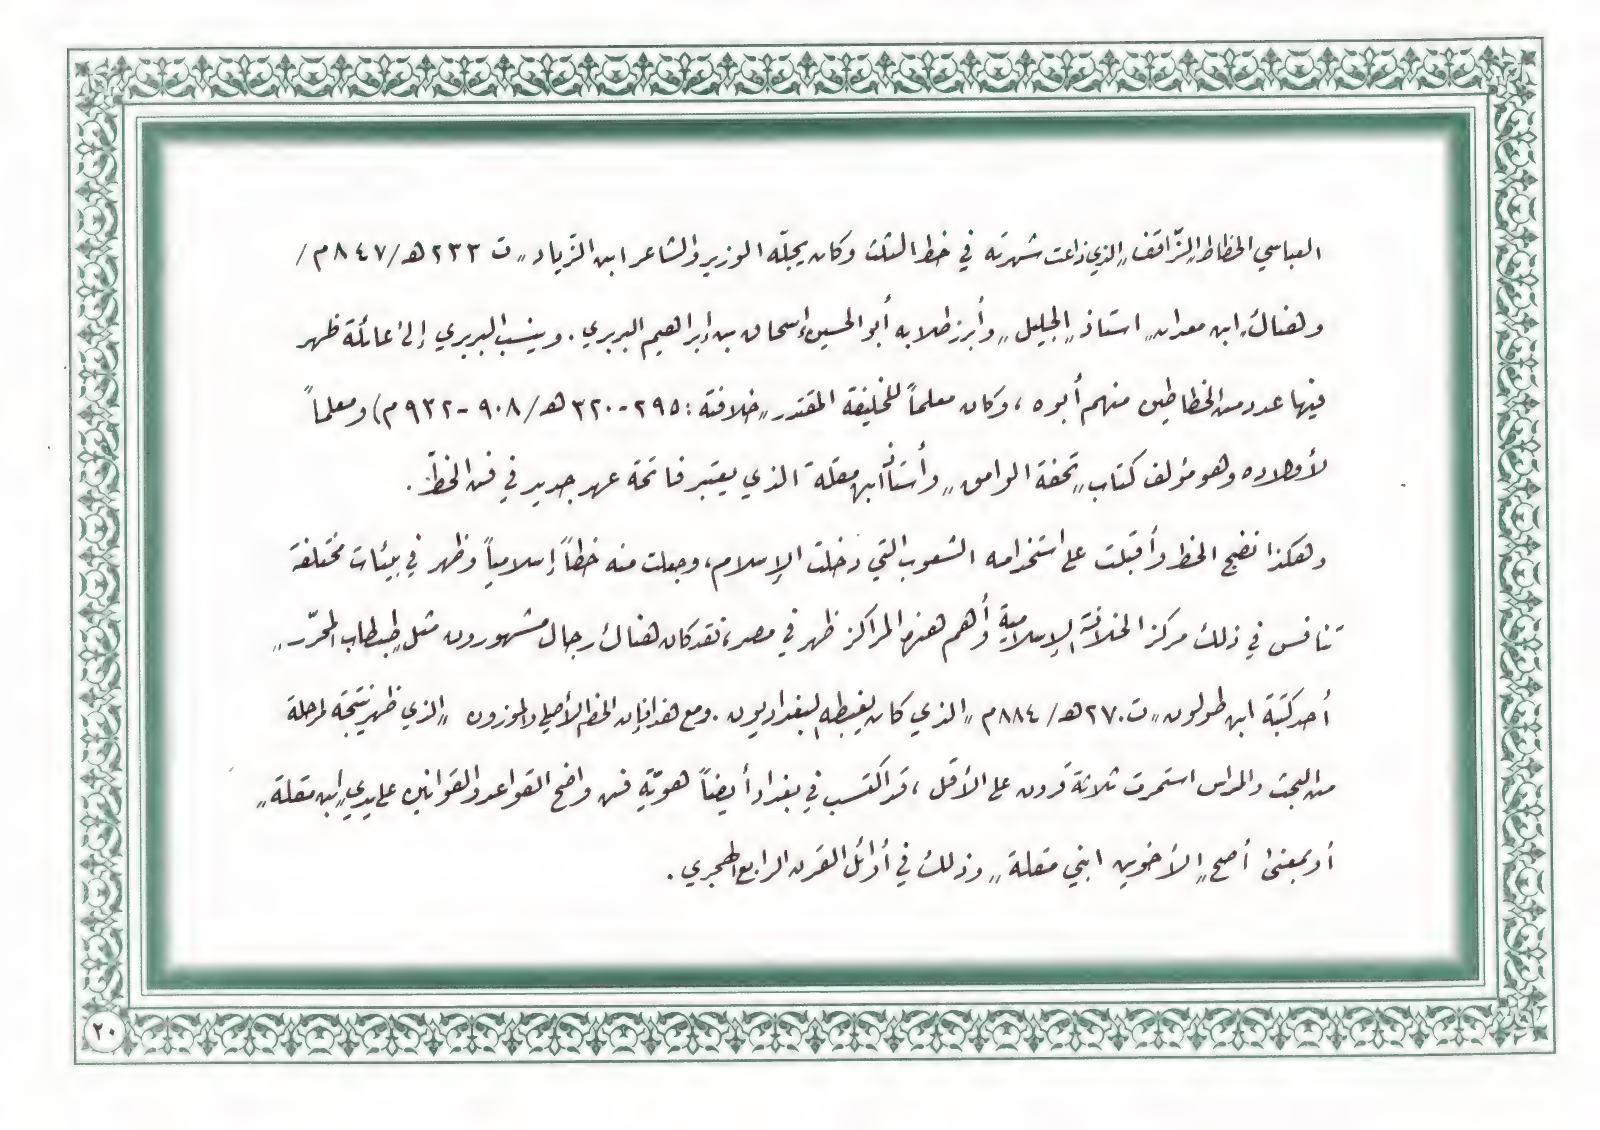 العباسي الخطاط „الزّاقف„ الذي ذاعت شهرته في خط الثلث وكان يجلّه الوزير والشاعر ابن الزّياد „ت ٢٣٣هـ/٨٤٧م/
وهناك ابن معدان„ استاذ „الجليل„ وأبرز طلابه أبو الحسين إسحاق بن إبراهيم البربري . وينسب البربري إلى عائلة ظهر
فيها عدد من الخطاطين منهم أبوه ، وكان معلماً للخليفة المقتدر „خلافته : ٢٩٥-٣٢٠هـ/٩٠٨-٩٣٢م) ومعلماً
لأولاده وهو مؤلف كتاب „تحفة الوامق„ وأستاذ ابن مقلة الذي يعتبر فاتحة عهد جديد في فن الخطّ .
وهكذا نضج الخط وأقبلت على استخدامه الشعوب التي دخلت الإسلام، وجعلت منه خطاً إسلامياً وظهر في بيئات مختلفة
تنافس في ذلك مركز الخلافة الإسلامية وأهم هذه المراكز ظهر في مصر، فقد كان هناك رجال مشهورون مثل „طبطاب المحرّر„
أحد كتبة ابن طولون „ت ٢٧٠هـ/ ٨٨٤م„ الذي كان يغبطه البغداديون . ومع هذا فإن الخط الأصلي والموزون „الذي ظهر نتيجة لمرحلة
من البحث والمراس استمرت ثلاثة قرون على الأقل ، قد اكتسب في بغداد أيضاً هويّة فن واضح القواعد والقوانين على يدي „ابن مقلة„
أو بمعنى أصح „الأخوين ابني مقلة„ وذلك في أوائل القرن الرابع الهجري .
٢٠